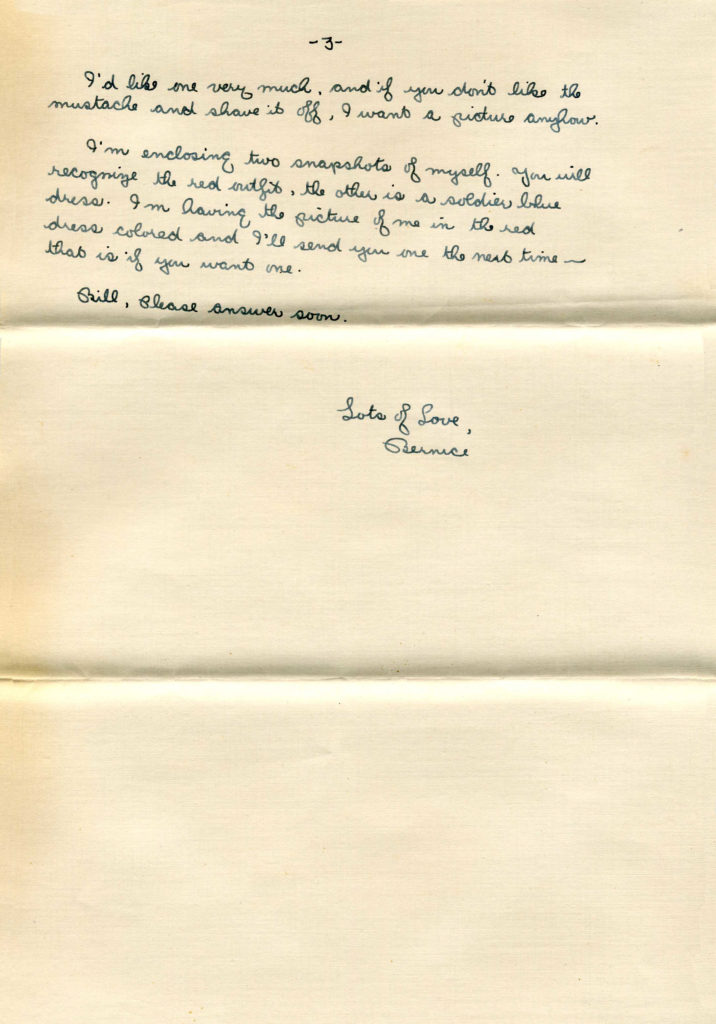 -3-
I'd like one very much, and if you don't like the
mustache and shave it off, I want a picture anyhow.
I'm enclosing two snapshots of myself. You will
recognize the red outfit, the other is a soldier blue
dress. I'm having the picture of me in the red
dress colored and I'll send you one the next time —
that is if you want one.
Bill, Please answer soon.
Lots of Love,
Bernice